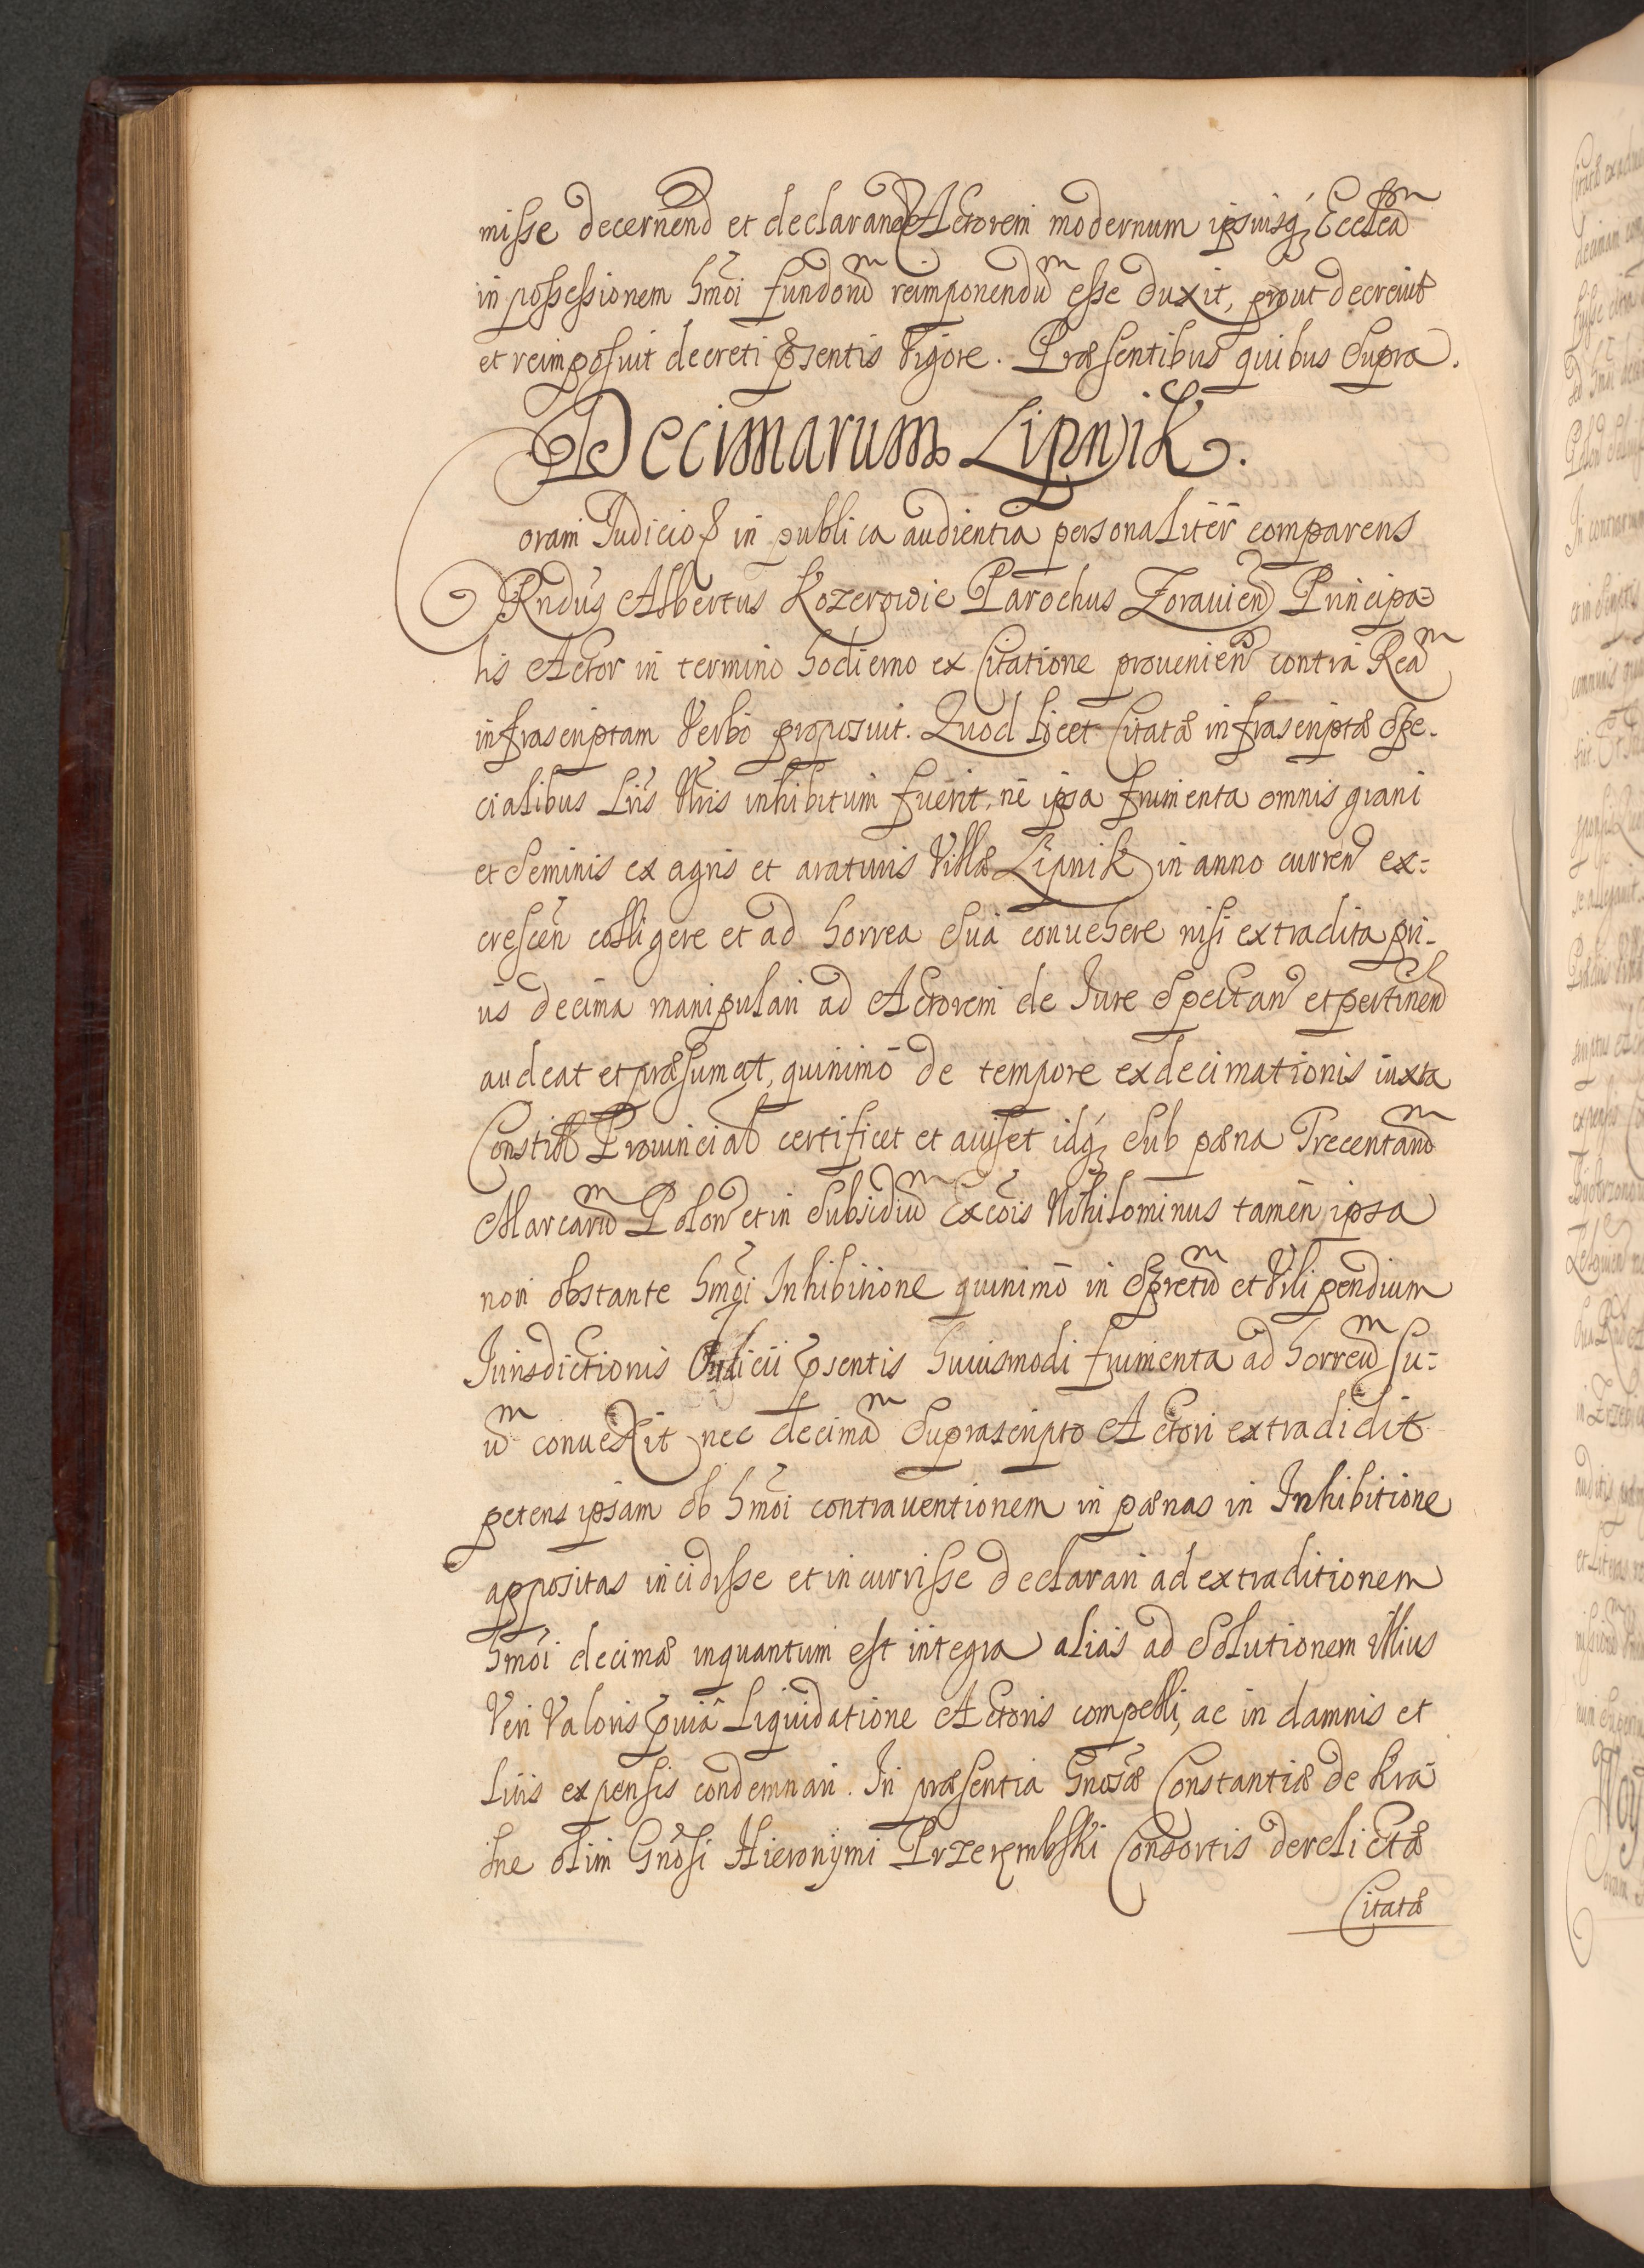 misse decernend et declarand Actorem modernum ipsiusq Eccleam
in possessionem hmoi fundorum reimponendum esse duxit, prout decrevit
et reimposuit decreti pntis vigore. Præsentibus quibus supra.
Decimarum Lipnik.
Coram Judicio et in publica audientia personaliter comparens
Rndus Albertus Kozerowic Parochus Zoravien Principa=
lis Actor in termino hodierno ex Citatione provenien contra Ream
infrascriptam verbo proposuit. Quod licet Citatæ infrascriptæ spe-
cialibus Lris Nris inhibitum fuerit, ne ipsa frumenta omnis grani
et seminis ex agris et araturis Villæ Lipnik in anno curren ex=
crescen colligere et ad horrea sua convehere nisi extradita pri-
us decima manipulari ad Actorem de Jure spectan et pertinen
audeat et præsumat, quinimo de tempore exdecimationis iuxta
Constit Provincial certificet et aviset idq sub pæna Trecentarum
Marcarum Polon et in subsidium Excois Nihilominus tamen ipsa
non obstante hmoi Inhibitione quinimo in spretum et vilipendium
Jurisdictionis Officii pntis huiusmodi frumenta ad horreum su=
um convexit nec decimam suprascripto Actori extradidit
petens ipsam ob hmoi contraventionem in pænas in Inhibitione
appositas incidisse et incurrisse declarari ad extraditionem
hmoi decimæ inquantum est integra alias ad solutionem illius
veri valoris prævia Liquidatione Actoris compelli, ac in damnis et
litis expensis condemnari. In præsentia Gnosæ Constantiæ de Kra
sne olim Gnosi Hieronymi Przerembski Consortis derelictæ
Citatæ